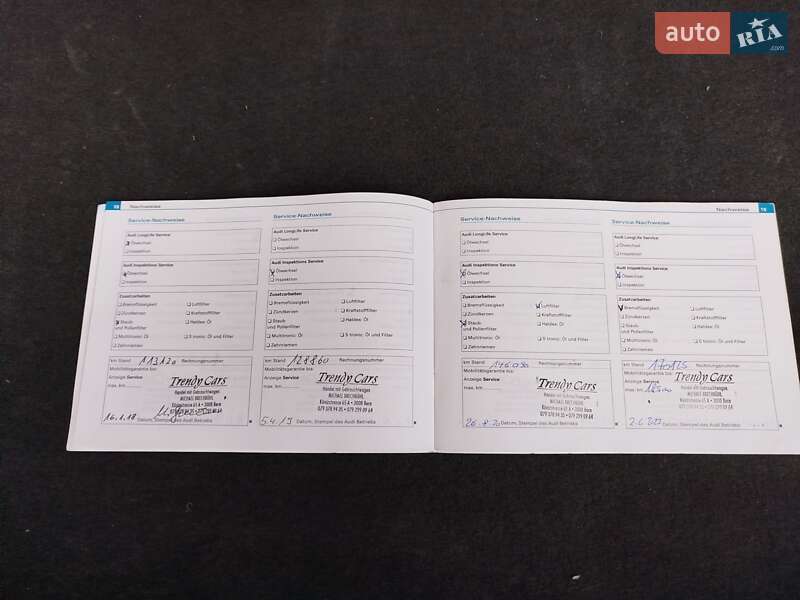 auto RIA.com
18 Nachweise
Service-Nachweise
Audi LongLife Service
Ölwechsel
Inspektion
Audi Inspektions Service
Ölwechsel
Inspektion
Zusatzarbeiten
Bremsflüssigkeit
Luftfilter
Zündkerzen
Kraftstofffilter
Staub
und Pollenfilter
Haldex: Öl
Multitronic: Öl
S tronic: Öl und Filter
Zahnriemen
km Stand 113120 Rechnungsnummer
Mobilitätsgarantie bis:
Anzeige Service
max. km
Trendy Cars
Handel mit Gebrauchtwagen
079 578 94 35 • 079 299 69 64
16.1.18
Datum, Stempel des Audi Betriebs
Service-Nachweise
Audi LongLife Service
Ölwechsel
Inspektion
Audi Inspektions Service
Ölwechsel
Inspektion
Zusatzarbeiten
Bremsflüssigkeit
Luftfilter
Zündkerzen
Kraftstofffilter
Staub
und Pollenfilter
Haldex: Öl
Multitronic: Öl
S tronic: Öl und Filter
Zahnriemen
km Stand 128860 Rechnungsnummer
Mobilitätsgarantie bis:
Anzeige Service
max. km
Trendy Cars
Handel mit Gebrauchtwagen
079 578 94 35 • 079 299 69 64
5.4.19
Datum, Stempel des Audi Betriebs
Nachweise
Service-Nachweise
Audi LongLife Service
Ölwechsel
Inspektion
Audi Inspektions Service
Ölwechsel
Inspektion
Zusatzarbeiten
Bremsflüssigkeit
Luftfilter
Zündkerzen
Kraftstofffilter
Staub
und Pollenfilter
Haldex: Öl
Multitronic: Öl
S tronic: Öl und Filter
Zahnriemen
km Stand Rechnungsnummer
Mobilitätsgarantie bis:
Anzeige Service
max. km
Trendy Cars
Handel mit Gebrauchtwagen
079 578 94 35 • 079 299 69 64
Datum, Stempel des Audi Betriebs
Service-Nachweise
Audi LongLife Service
Ölwechsel
Inspektion
Audi Inspektions Service
Ölwechsel
Inspektion
Zusatzarbeiten
Bremsflüssigkeit
Luftfilter
Zündkerzen
Kraftstofffilter
Staub
und Pollenfilter
Haldex: Öl
Multitronic: Öl
S tronic: Öl und Filter
Zahnriemen
km Stand 170125 Rechnungsnummer
Mobilitätsgarantie bis:
Anzeige Service
max. km
Trendy Cars
Handel mit Gebrauchtwagen
079 578 94 35 • 079 299 69 64
Datum, Stempel des Audi Betriebs